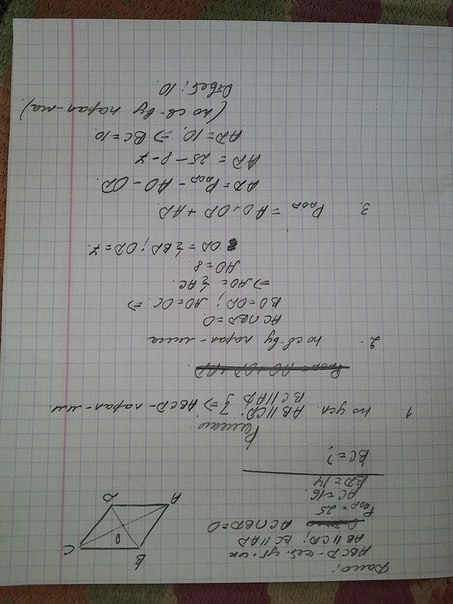 Дано:
ABCD - чет. уг-ик
AB || CD; BC || AD
AC∩BD=O
P_AOD = 25
AC = 16.
BD = 14
BC = ?
B
C
O
A
D
Решение
1. по усл. AB || CD; BC || AD } => ABCD - парал-мм
2. по св-ву парал-мма
AC∩BD=O
BO=OD; AO=OC =>
=> AO = ½ AC
AO = 8
OD = ½ BD; OD = 7.
3. P_AOD = AO + OD + AD
AD = P_AOD - AO - OD
AD = 25 - 8 - 7
AD = 10. => BC = 10
(по св-ву парал-ма)
Ответ: 10.